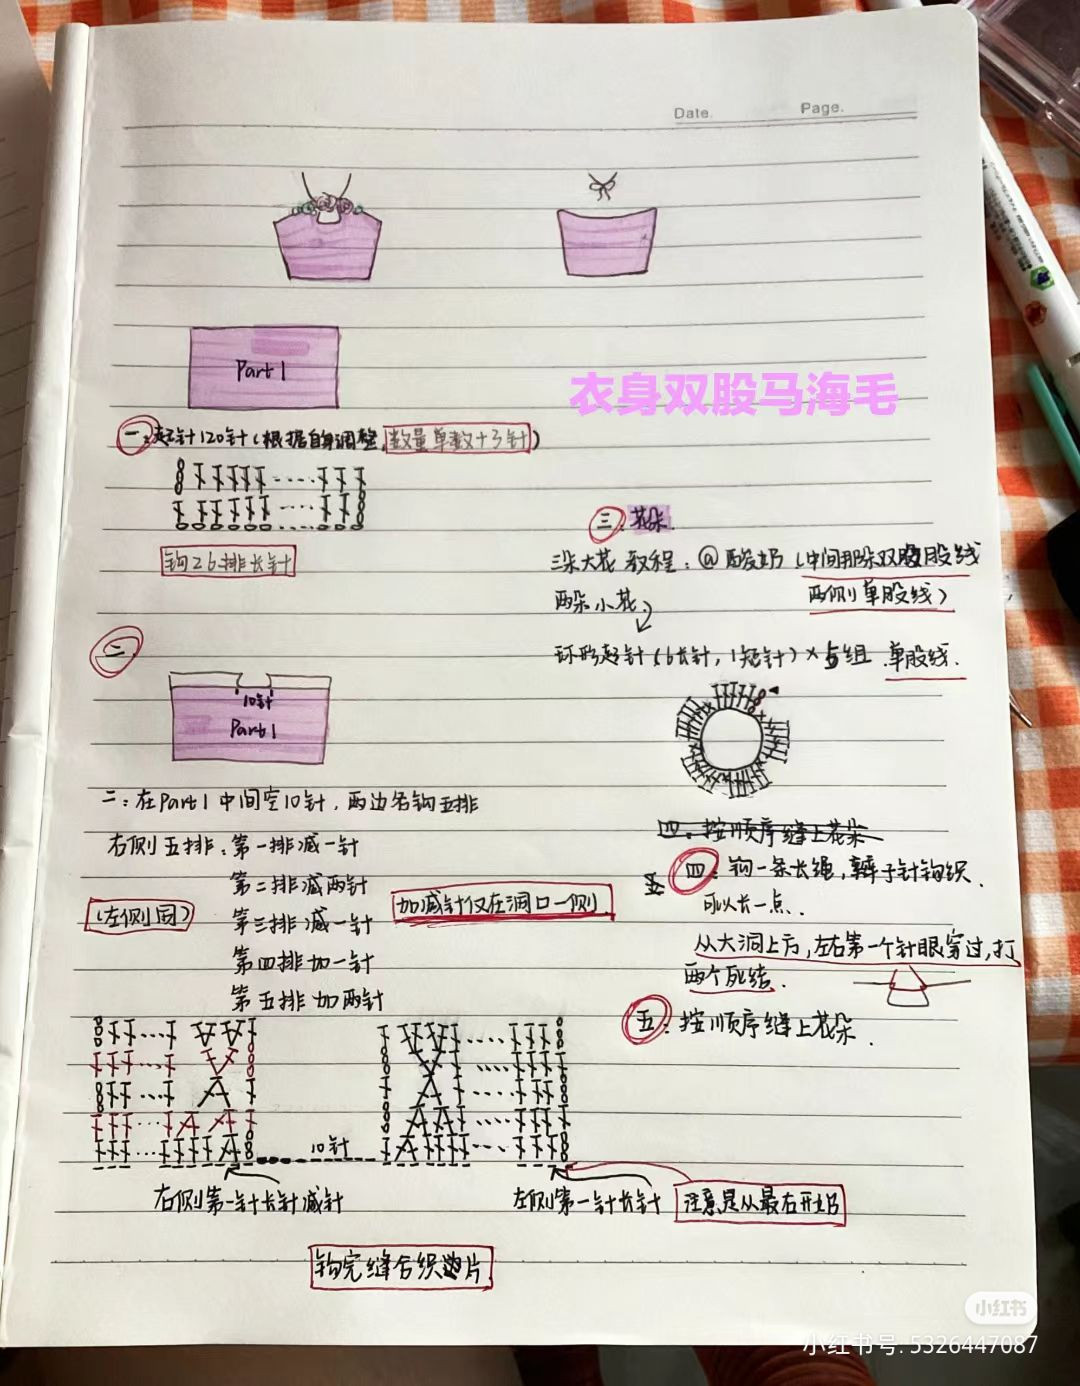 Date.
Page.
Part 1
衣身双股马海毛
一:起针120针(根据自身调整,数量单数+3针)
钩26排长针
二
10针
Part 1
二:在Part 1中间空10针,两边各钩五排
右侧五排:第一排减一针
第二排减两针
(左侧同)
第三排减一针
加减针仅在洞口一侧
第四排加一针
第五排加两针
10针
右侧第一针长针减针
左侧第一针长针
注意是从最右开始
钩完缝合织片
三:花朵.
三朵大花 教程:@酸奶(中间那朵双股线
两侧单股线)
两朵小花
环形起针(6长针,1短针)×5组 单股线.
四:按顺序缝上花朵
四:钩一条长绳,辫子针钩织.
可以长一点.
从大洞上方,左右第一个针眼穿过,打
两个死结.
五:按顺序缝上花朵.
小红书
小红书号: 5326447087